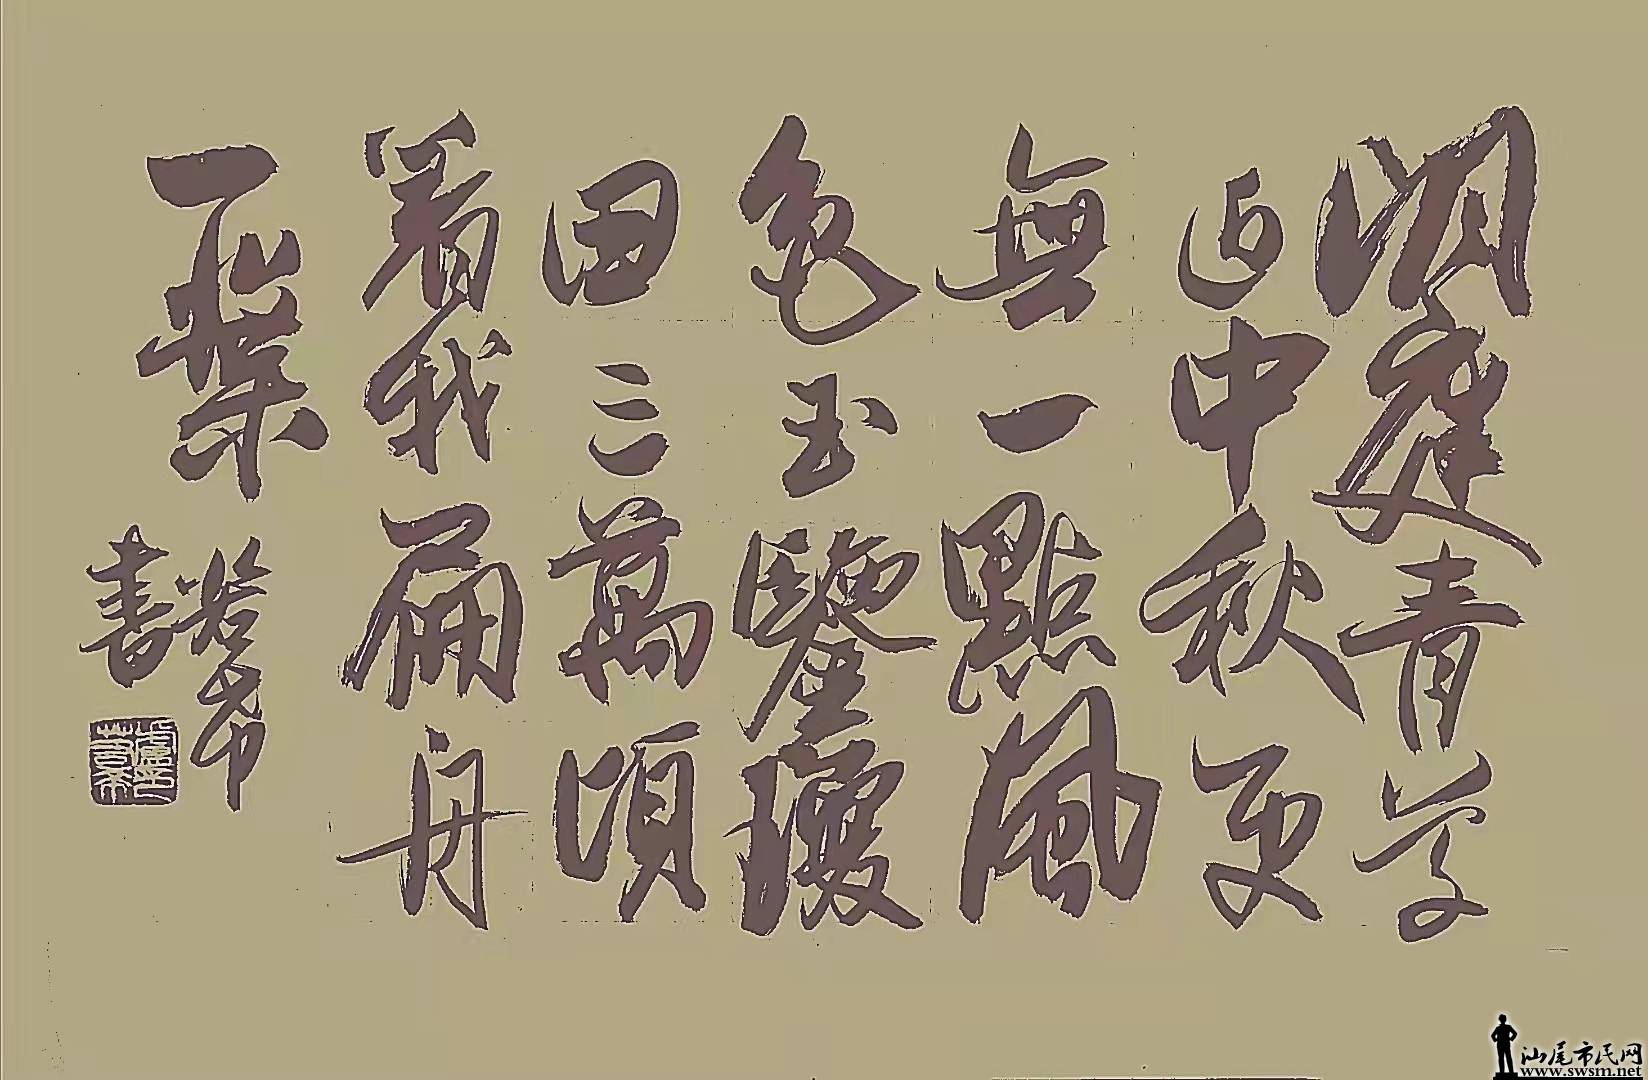 洞庭青草
近中秋更
無一點風
色玉鑒瓊
田三萬頃
著我扁舟
一葉
書
汕尾市民网
www.swsm.net